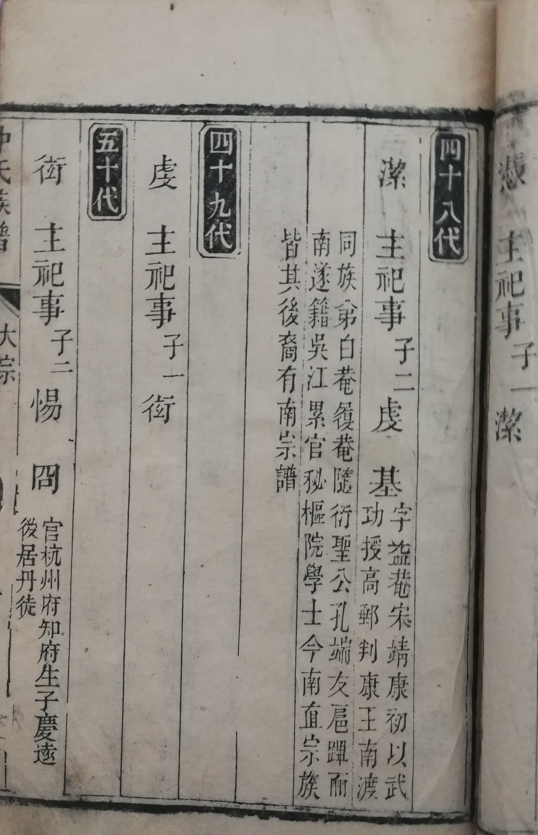 憑 主祀事 子一 潔
四十八代
潔 主祀事 子二 虔 基
字益菴宋靖康初以武
功授高郵判康王南渡
同族弟白菴履菴隨衍聖公孔端友扈蹕而
南遂籍吳江累官秘樞院學士今南直宗族
皆其後裔有南宗譜
四十九代
虔 主祀事 子一 衒
五十代
衒 主祀事 子二 惕 冏
官杭州府知府生子慶遠
後居丹徒
氏族譜
大宗